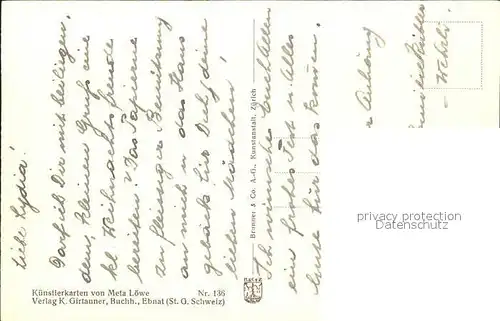 Liebe Lydia!
Darf ich Dir mit beiliegen-
dem, kleinen Gruß eine
kl. Weihnachtsfreude
bereiten? Das Papierene
zu fleissiger Benützung
an mich u. das Haus
gebäck für Dich & deine
lieben Mädchen!
Ich wünsche Euch Allen
ein frohes Fest u. Alles
Gute für das kommen.
Anhang
- Webstr.
Brunner & Co. A.-G., Kunstanstalt, Zürich
Künstlerkarten von Meta Löwe Nr. 136
Verlag K. Girtauner, Buchh., Ebnat (St. G. Schweiz)
privacy protection
watermark